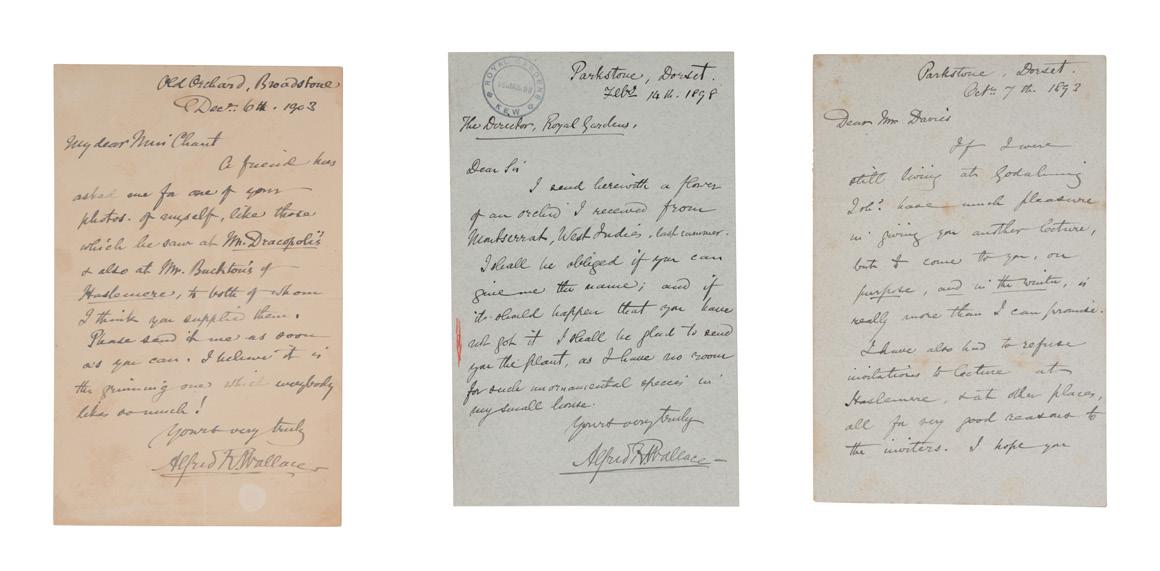 Old Orchard, Broadstone
Decr. 6th. 1903
My dear Miss Chant
A friend has
asked me for one of your
photos. of myself, like those
which he saw at Mr. Dracopoli's
& also at Mr. Buckton's of
Haslemere, to both of whom
I think you supplied them.
Please send it me as soon
as you can. I believe it is
the grinning one which everybody
likes so much!
Yours very truly
Alfred R Wallace
ROYAL GARDENS
KEW
Parkstone, Dorset.
Feb. 14th. 1898
The Director, Royal Gardens,
Dear Sir
I send herewith a flower
of an orchid I received from
Montserrat, West Indies, last summer.
I shall be obliged if you can
give me the name; and if
it should happen that you have
not got it I shall be glad to send
you the plant, as I have no room
for such unornamental species in
my small house.
Yours very truly
Alfred R Wallace
Parkstone, Dorset.
Octr. 7th. 1893
Dear Mr. Davies
If I were
still living at Godalming
I shd. have much pleasure
in giving you another lecture,
but to come to you, on
purpose, and in the winter, is
really more than I can promise.
I have also had to refuse
invitations to lecture at
Haslemere, & at other places,
all for very good reasons to
the inviters. I hope you